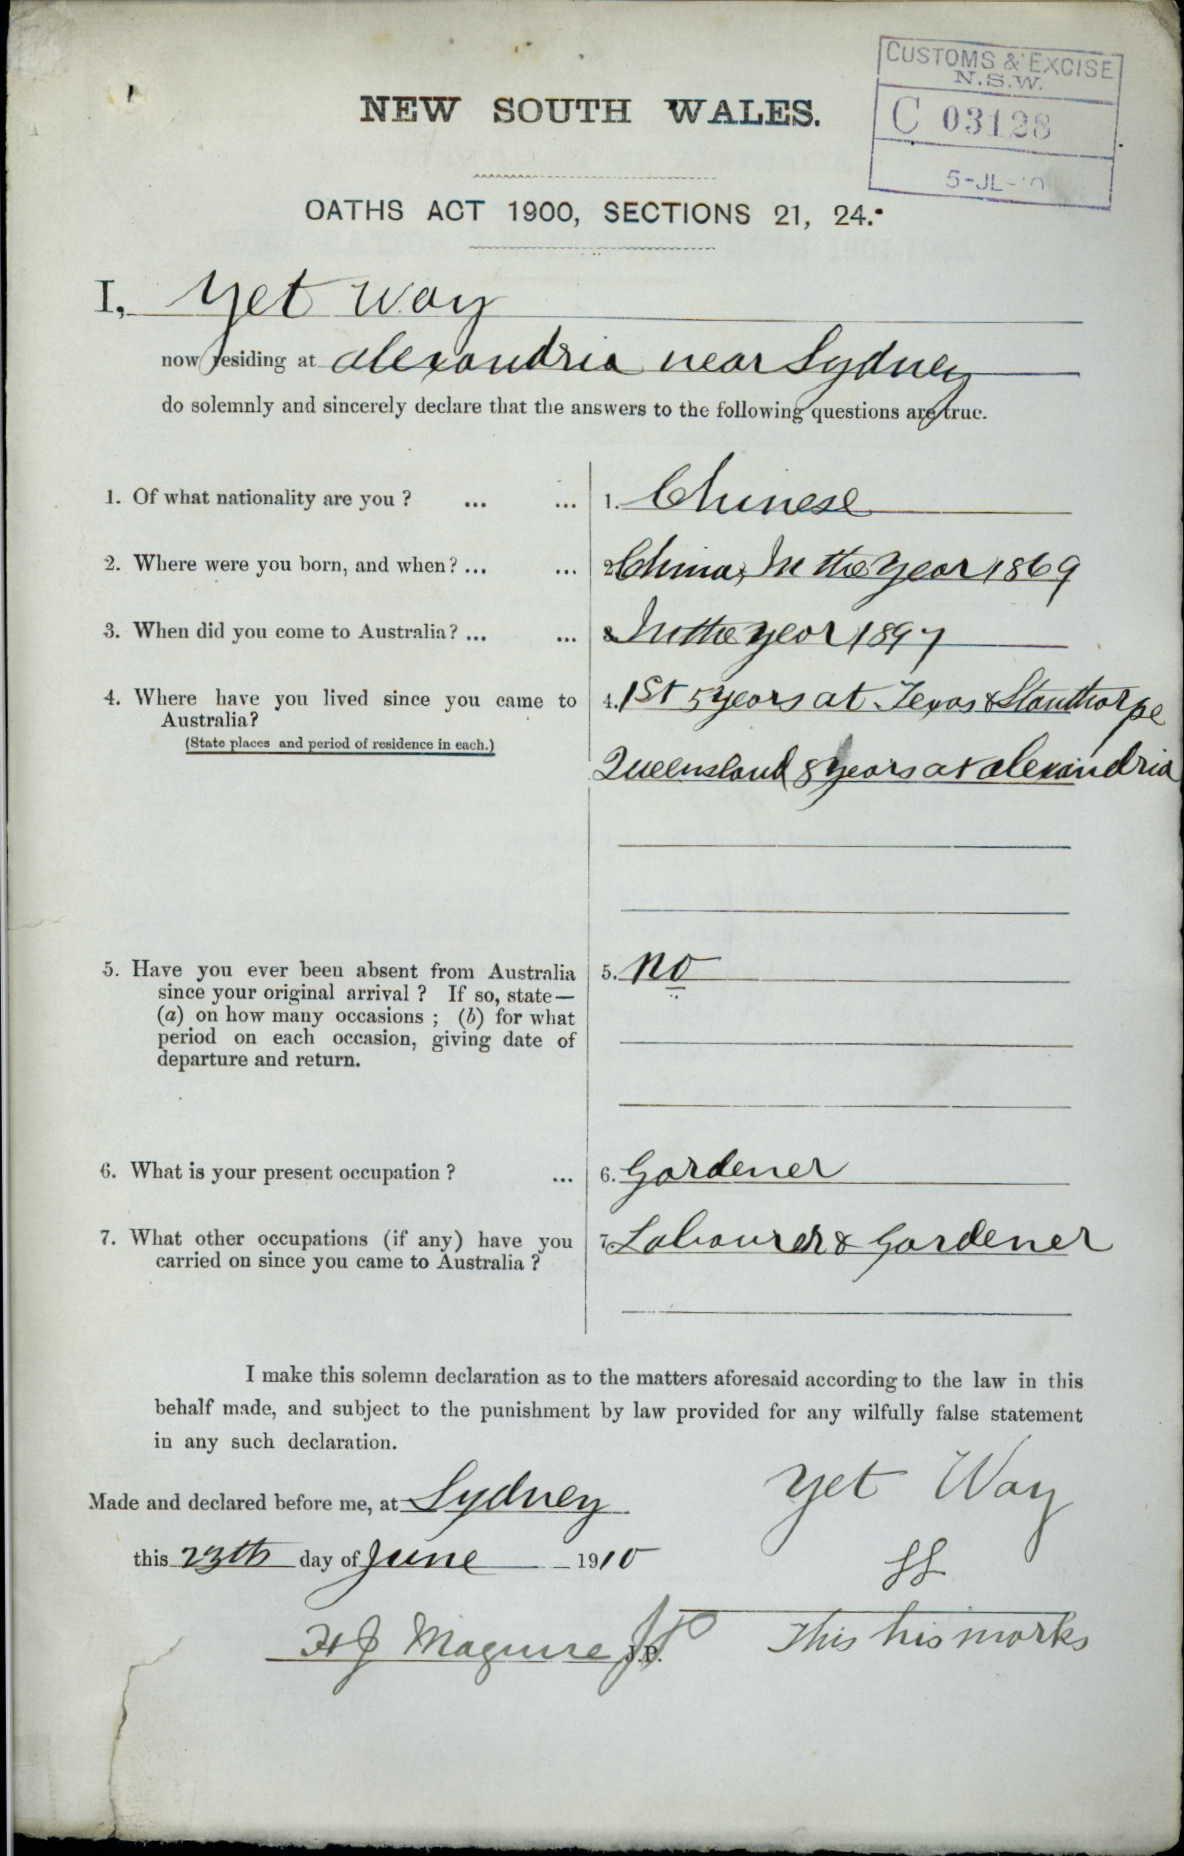 CUSTOMS & EXCISE
N.S.W.
C 03128
5-JL-10
NEW SOUTH WALES.
OATHS ACT 1900, SECTIONS 21, 24.
I, Yet Way
now residing at Alexandria near Sydney
do solemnly and sincerely declare that the answers to the following questions are true.
1. Of what nationality are you ? ... ... 1. Chinese
2. Where were you born, and when? ... ... 2. China, In the Year 1869
3. When did you come to Australia? ... ... 3. In the year 1897
4. Where have you lived since you came to 4. 1st 5 years at Texas & Stanthorpe
Australia?
(State places and period of residence in each.)
Queensland 8 years at Alexandria
5. Have you ever been absent from Australia 5. no
since your original arrival ? If so, state—
(a) on how many occasions ; (b) for what
period on each occasion, giving date of
departure and return.
6. What is your present occupation ? ... 6. Gardener
7. What other occupations (if any) have you 7. Labourer & Gardener
carried on since you came to Australia ?
I make this solemn declaration as to the matters aforesaid according to the law in this
behalf made, and subject to the punishment by law provided for any wilfully false statement
in any such declaration.
Yet Way
Made and declared before me, at Sydney
this 23th day of June 1910
H J Maguire JP J.P. This his marks